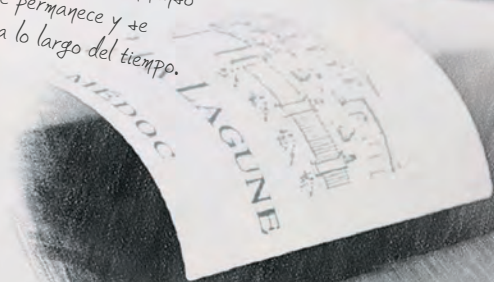 permanece y se
a lo largo del tiempo.
LAGUNE
MÉDOC